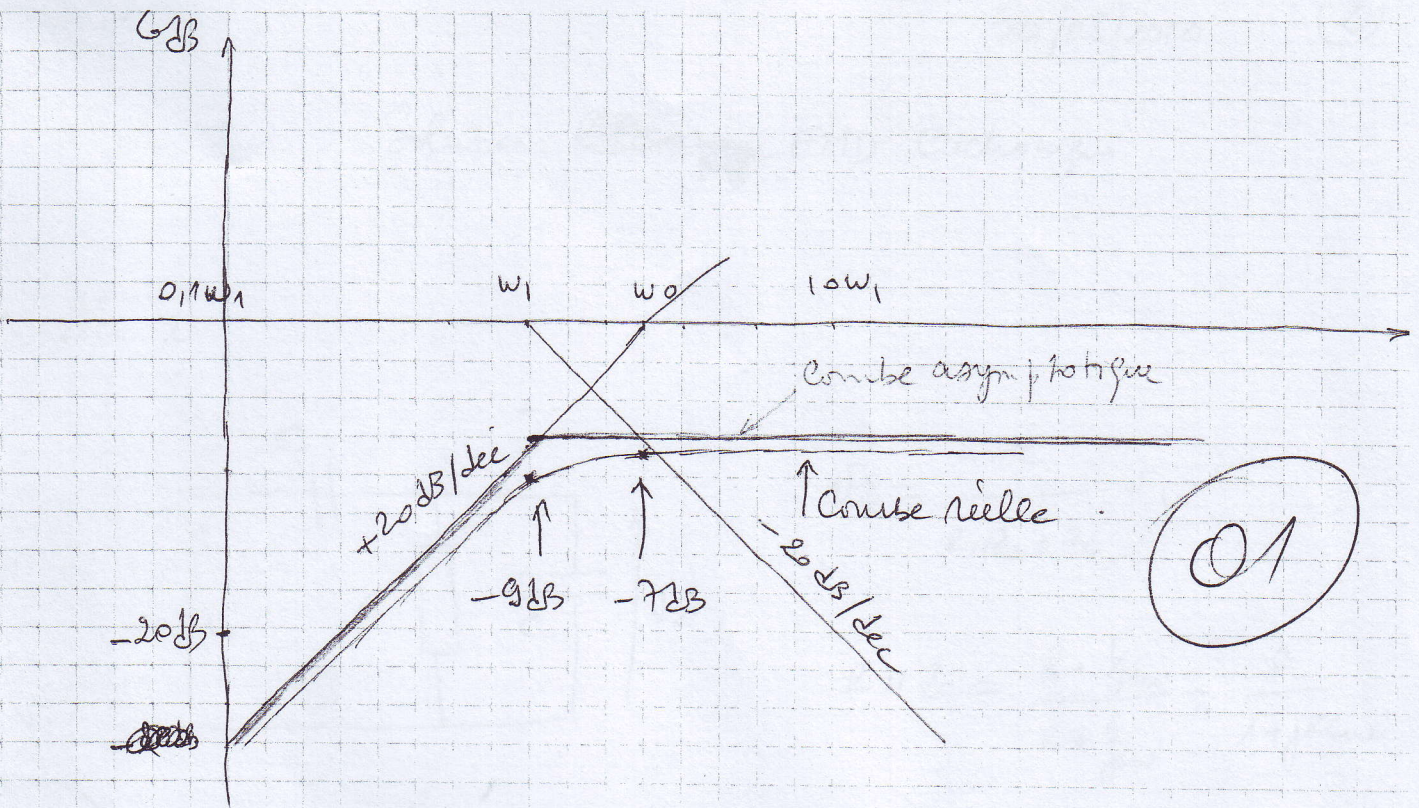 GdB
0,1w1
w1
w0
10w1
Courbe asymptotique
+20dB/dec
Courbe réelle
-9dB
-7dB
-20dB/dec
01
-20dB